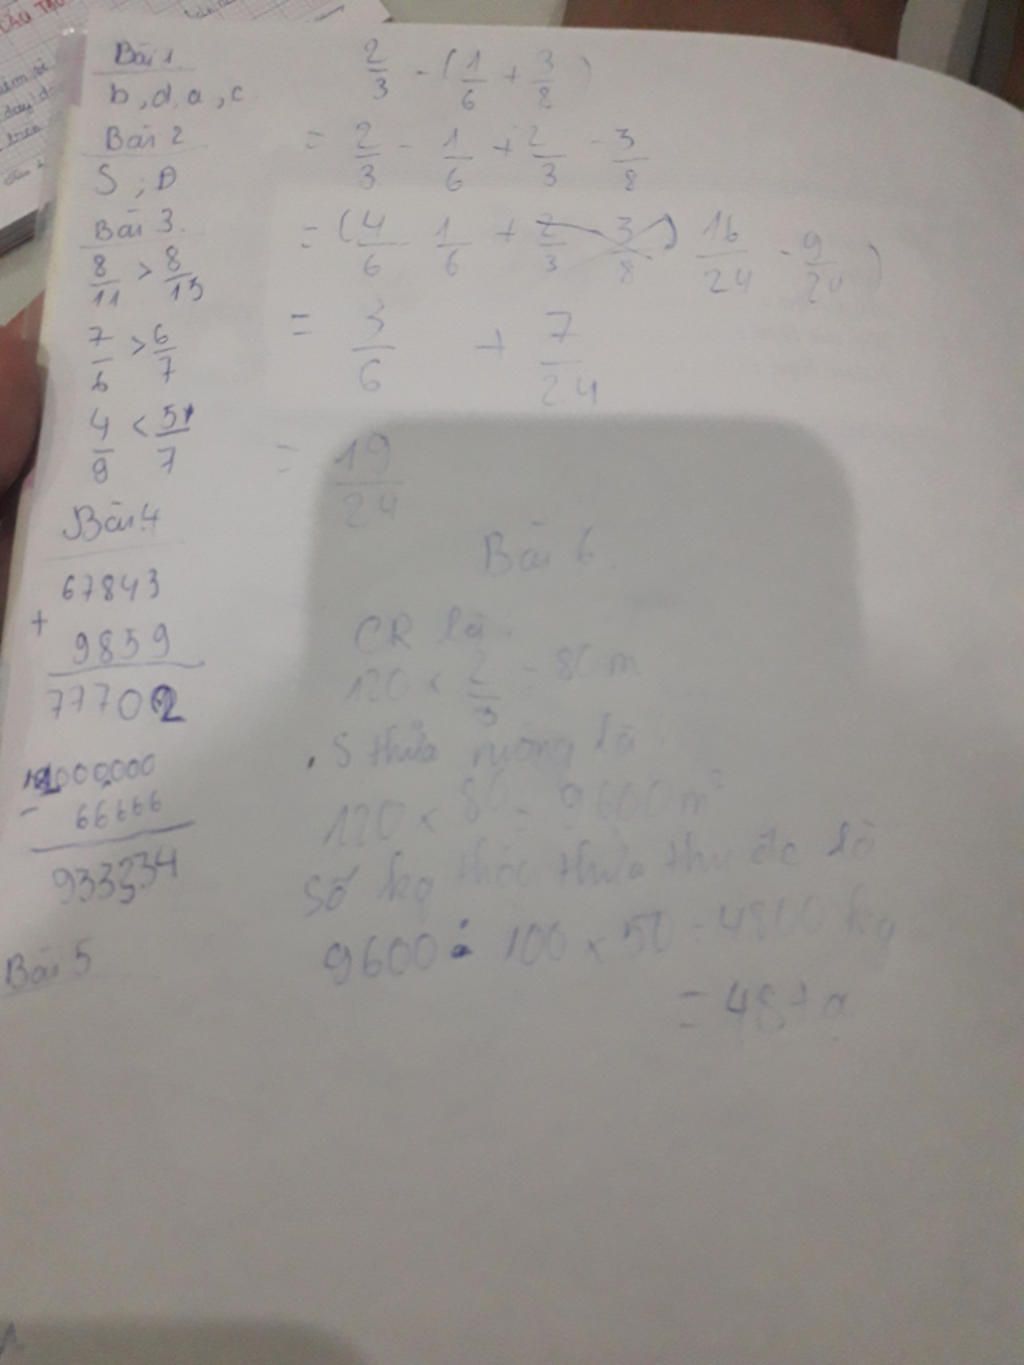 Bài 1
b, d, a, c
Bài 2
S ; Đ
Bài 3.
8/11 > 8/13
7/6 > 6/7
4/9 < 5/7
Bài 4
67843
+
9859
77702
1000000
-
66666
933334
Bài 5
2/3 - (1/6 + 3/8)
= 2/3 - 1/6 + 2/3 - 3/8
= (4/6 1/6 + 2/3 3/8) 16/24 - 9/24)
= 3/6 + 7/24
= 19/24
Bài 6.
CR là.
120 x 2/3 = 80 m
S thửa ruộng là
120 x 80 = 9600 m²
Số kg thóc thửa thu đc là
9600 : 100 x 50 = 4800 kg
= 48 tạ